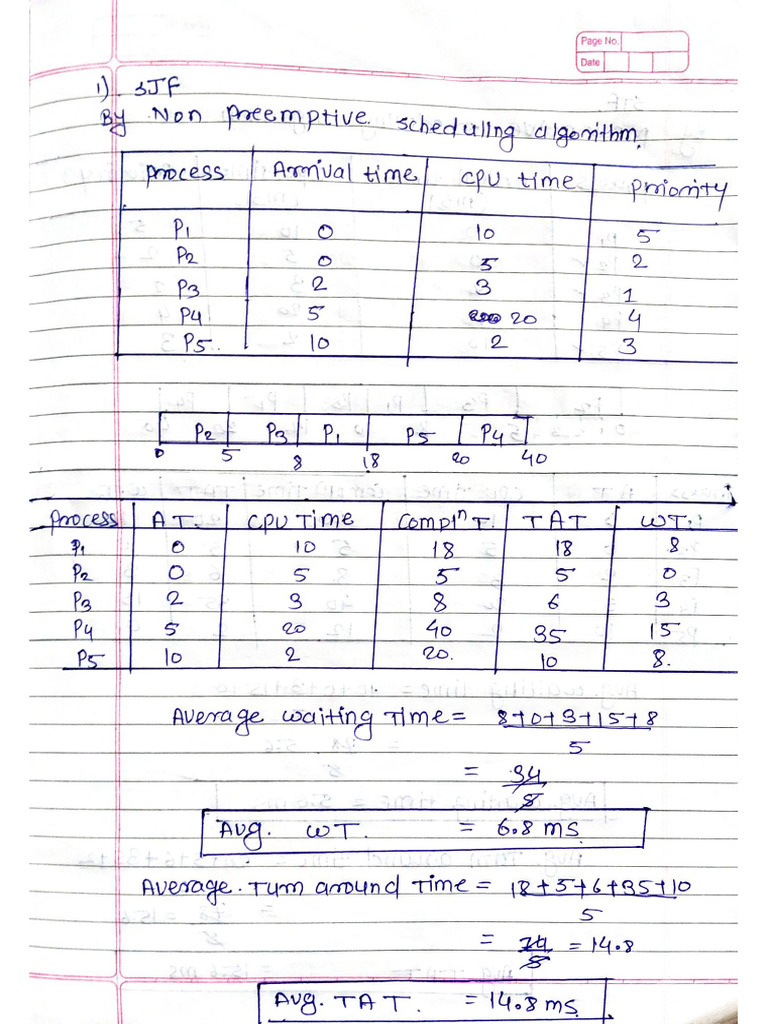 Page No.
Date
1) SJF
By Non Preemptive scheduling algorithm.
Process Arrival time CPU time Priority
P1 0 10 5
P2 0 5 2
P3 2 3 1
P4 5 20 4
P5 10 2 3
P2 P3 P1 P5 P4
0 5 8 18 20 40
Process A T. CPU Time Complⁿ T. TAT WT.
P1 0 10 18 18 8
P2 0 5 5 5 0
P3 2 3 8 6 3
P4 5 20 40 35 15
P5 10 2 20. 10 8.
Average waiting Time = 8+0+3+15+8
5
= 34
5
Avg. WT. = 6.8 ms.
Average. Turn around Time = 18+5+6+35+10
5
= 74 = 14.8
5
Avg. TAT. = 14.8 ms.